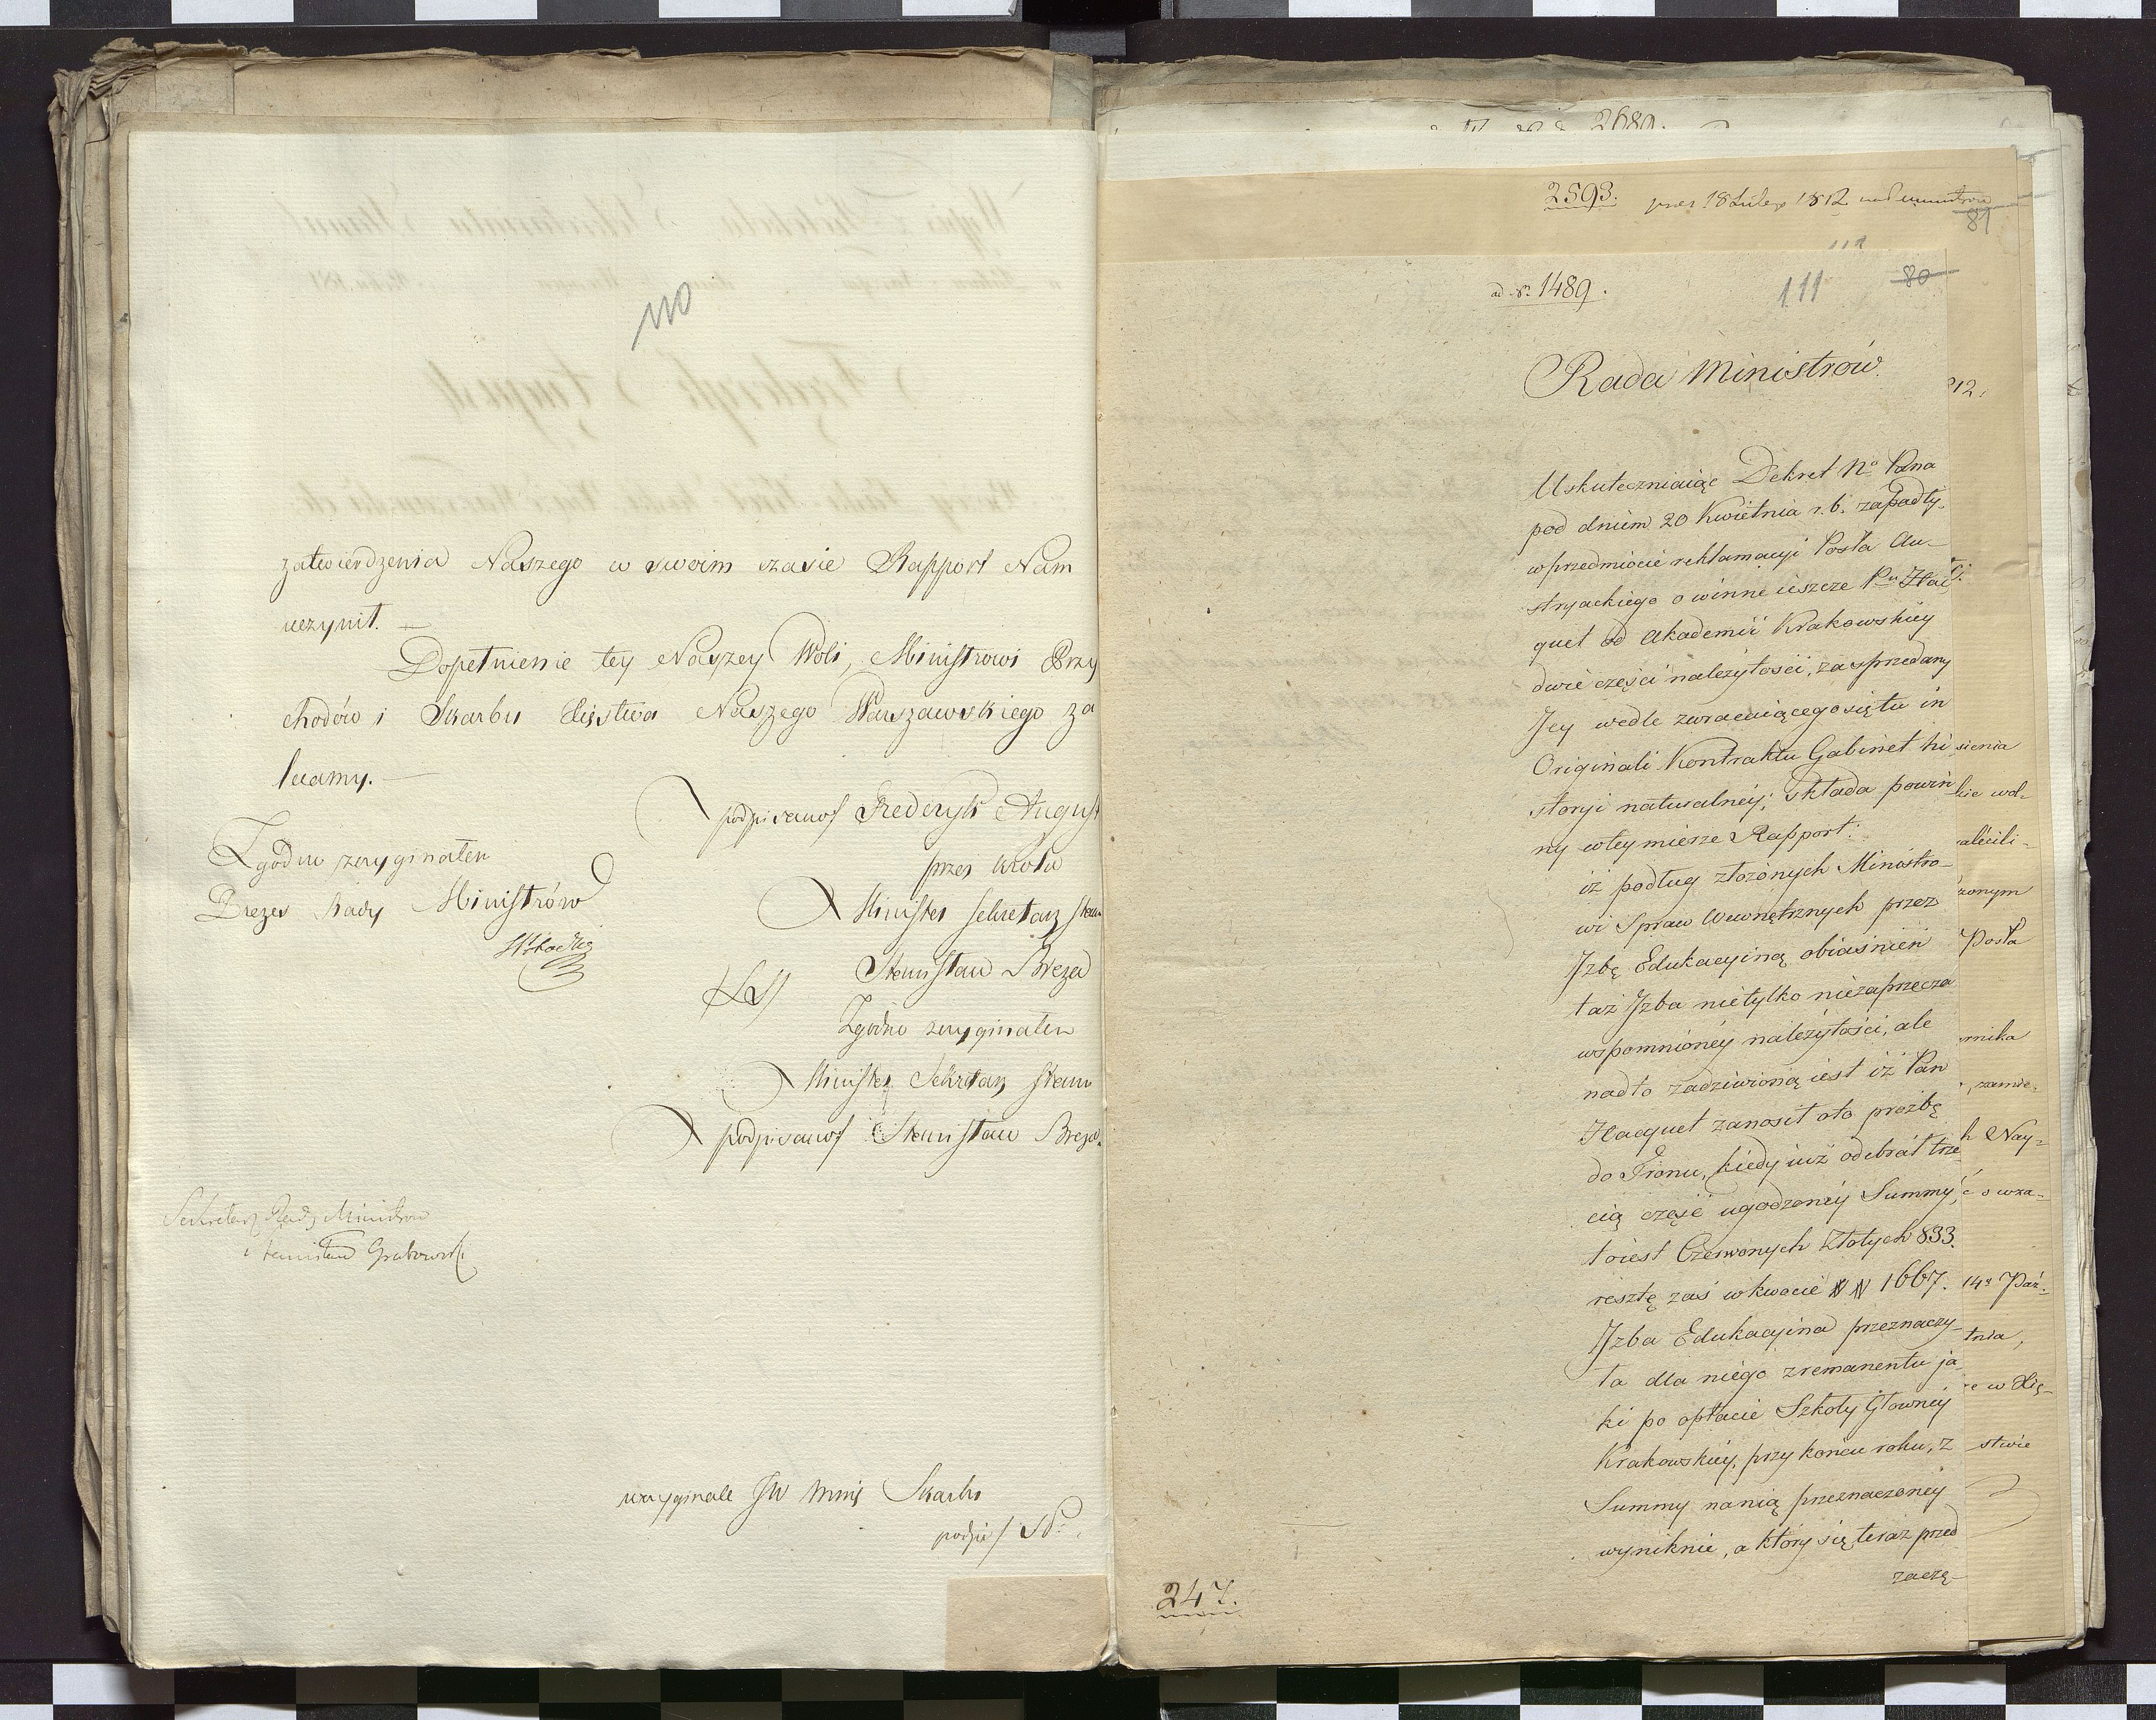 110
zatwierdzenia Naszego w swoim czasie Rapport Nam
uczynił. —
Dopełnienie tey Naszey Woli, Ministrowi Przy
chodów i Skarbu Xięstwa Naszego Warszawskiego za
lecamy. —
podpisano/ Frederyk August
przez Krola
Minister Sekretarz Stanu
Stanisław Breza
(LS)
Zgodno z oryginałem
Minister Sekretarz Stanu
podpisano/ Stanisław Breza.
Zgodno z oryginałem
Prezes Rady Ministrów
Sekretarz Rady Ministrow
Stanisław Grabowski
w oryginale JW Minis Skarbu
podpis/
2689.
2593. prez 18 Lutego 1812
81
ad Nr. 1489.
111
80
Rada Ministrów.
Uskuteczniaiąc Dekret No Pana
pod dniem 20 Kwietnia r. b. zapadły.
w przedmiocie reklamacyi Posła Au-
stryackiego o winne ieszcze Pu Hac
quet od Akademii Krakowskiey
dwie części należytości, za sprzedany
Jey wedle zwracaiącego się tu in
Originali Kontraktu Gabinet hi
storyi naturalnéy; składa powin
ny w tey mierze Rapport:
iż podług złożonych Ministro-
wi Spraw Wewnętrznych przez
Jzbę Edukacyiną obiaśnień
taż Jzba nietylko niezaprzecza
wspomnionéy należytości, ale
nadto zadziwioną iest iż Pan
Hacquet zanosił oto prozbę
do Tronu, kiedy iuż odebrał trze
cią część ugodzonéy Summy,
toiest Czerwonych Złotych 833.
resztę zaś w kwocie # # 1667.
Jzba Edukacyina przeznaczy-
ła dla niego z remanentu ja-
ki po opłacie Szkoły Głowney
Krakowskiey, przy końcu roku, z
Summy na nią przeznaczoney
wyniknie, a który się teraz przed
zaczę-
247.
12.
sienia
kie wol-
alécili-
zonym
Posła
rnika
, zamie-
h Nay-
ć o wza-
14a Paź-
tnia,
re w Xię-
stwie